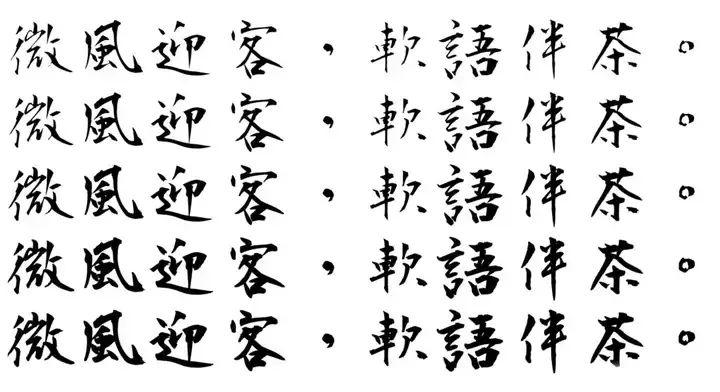 微風迎客，軟語伴茶。
微風迎客，軟語伴茶。
微風迎客，軟語伴茶。
微風迎客，軟語伴茶。
微風迎客，軟語伴茶。